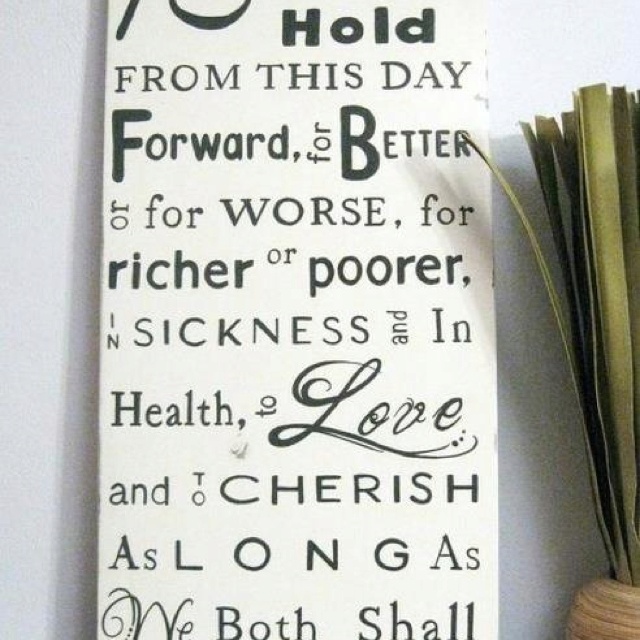 Hold
FROM THIS DAY
Forward, for BETTER
or for WORSE, for
richer or poorer,
IN SICKNESS and In
Health, to Love
and TO CHERISH
As LONG As
We Both Shall